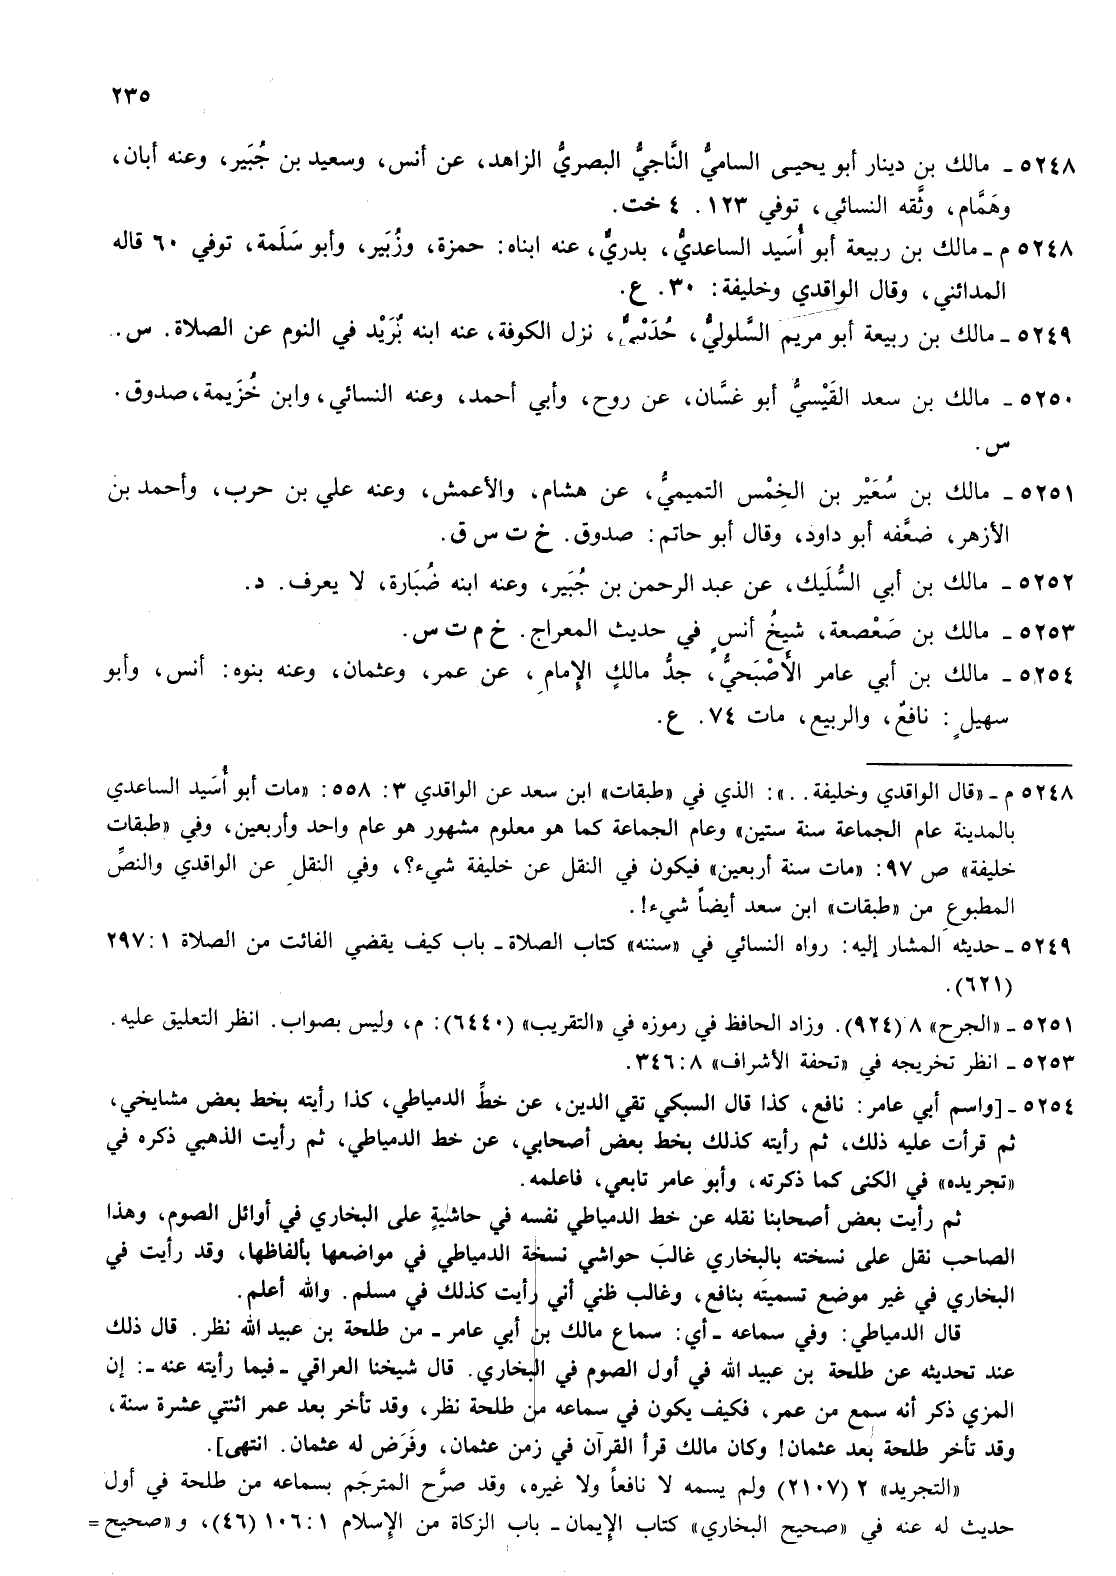 ٢٣٥
٥٢٤٨ ـ مالك بن دينار أبو يحيى الساميُّ النَّاجيُّ البصريُّ الزاهد، عن أنس، وسعيد بن جُبَير، وعنه أبان،
وهَمَّام، وثَّقه النسائي، توفي ١٢٣. ٤ خت.
٥٢٤٨ م ـ مالك بن ربيعة أبو أُسَيد الساعديُّ، بدريٌّ، عنه ابناه: حمزة، وزُبَير، وأبو سَلَمة، توفي ٦٠ قاله
المدائني، وقال الواقدي وخليفة: ٣٠. ع.
٥٢٤٩ ـ مالك بن ربيعة أبو مريم السَّلوليُّ، حُدَيْبيٌّ، نزل الكوفة، عنه ابنه بُرَيْد في النوم عن الصلاة. س.
٥٢٥٠ ـ مالك بن سعد القَيْسيُّ أبو غسَّان، عن روح، وأبي أحمد، وعنه النسائي، وابن خُزَيمة، صدوق.
س.
٥٢٥١ ـ مالك بن سُعَيْر بن الخِمْس التميميُّ، عن هشام، والأعمش، وعنه علي بن حرب، وأحمد بن
الأزهر، ضعَّفه أبو داود، وقال أبو حاتم: صدوق. خ ت س ق.
٥٢٥٢ ـ مالك بن أبي السُّلَيك، عن عبد الرحمن بن جُبَير، وعنه ابنه ضُبَارة، لا يعرف. د.
٥٢٥٣ ـ مالك بن صَعْصعة، شيخُ أنسٍ في حديث المعراج. خ م ت س.
٥٢٥٤ ـ مالك بن أبي عامر الأَصْبَحيُّ، جدُّ مالكٍ الإِمامِ، عن عمر، وعثمان، وعنه بنوه: أنس، وأبو
سهيلٍ: نافعٌ، والربيع، مات ٧٤. ع.
٥٢٤٨ م ـ «قال الواقدي وخليفة..»: الذي في «طبقات» ابن سعد عن الواقدي ٣: ٥٥٨: «مات أبو أُسَيد الساعدي
بالمدينة عام الجماعة سنة ستين» وعام الجماعة كما هو معلوم مشهور هو عام واحد وأربعين، وفي «طبقات
خليفة» ص ٩٧: «مات سنة أربعين» فيكون في النقل عن خليفة شيء؟، وفي النقل عن الواقدي والنصِّ
المطبوع من «طبقات» ابن سعد أيضاً شيء!.
٥٢٤٩ ـ حديثه المشار إليه: رواه النسائي في «سننه» كتاب الصلاة ـ باب كيف يقضي الفائت من الصلاة ١: ٢٩٧
(٦٢١).
٥٢٥١ ـ «الجرح» ٨ (٩٢٤). وزاد الحافظ في رموزه في «التقريب» (٦٤٤٠): م، وليس بصواب. انظر التعليق عليه.
٥٢٥٣ ـ انظر تخريجه في «تحفة الأشراف» ٨: ٣٤٦.
٥٢٥٤ ـ [واسم أبي عامر: نافع، كذا قال السبكي تقي الدين، عن خطِّ الدمياطي، كذا رأيته بخط بعض مشايخي،
ثم قرأت عليه ذلك، ثم رأيته كذلك بخط بعض أصحابي، عن خط الدمياطي، ثم رأيت الذهبي ذكره في
«تجريده» في الكنى كما ذكرته، وأبو عامر تابعي، فاعلمه.
ثم رأيت بعض أصحابنا نقله عن خط الدمياطي نفسه في حاشيةٍ على البخاري في أوائل الصوم، وهذا
الصاحب نقل على نسخته بالبخاري غالبَ حواشي نسخة الدمياطي في مواضعها بألفاظها، وقد رأيت في
البخاري في غير موضع تسميتَه بنافع، وغالب ظني أني رأيت كذلك في مسلم. والله أعلم.
قال الدمياطي: وفي سماعه ـ أي: سماع مالك بن أبي عامر ـ من طلحة بن عبيد الله نظر. قال ذلك
عند تحديثه عن طلحة بن عبيد الله في أول الصوم في البخاري. قال شيخنا العراقي ـ فيما رأيته عنه ـ: إن
المزي ذكر أنه سمع من عمر، فكيف يكون في سماعه من طلحة نظر، وقد تأخر بعد عمر اثنتي عشرة سنة،
وقد تأخر طلحة بعد عثمان! وكان مالك قرأ القرآن في زمن عثمان، وفَرَض له عثمان. انتهى].
«التجريد» ٢ (٢١٠٧) ولم يسمه لا نافعاً ولا غيره، وقد صرَّح المترجَم بسماعه من طلحة في أول
حديث له عنه في «صحيح البخاري» كتاب الإِيمان ـ باب الزكاة من الإِسلام ١: ١٠٦ (٤٦)، و «صحيح =